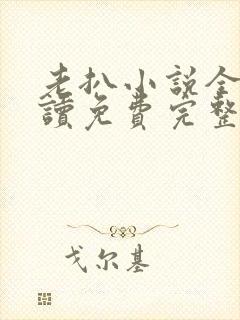 老扒小说全
讀免费完整
戈尔基